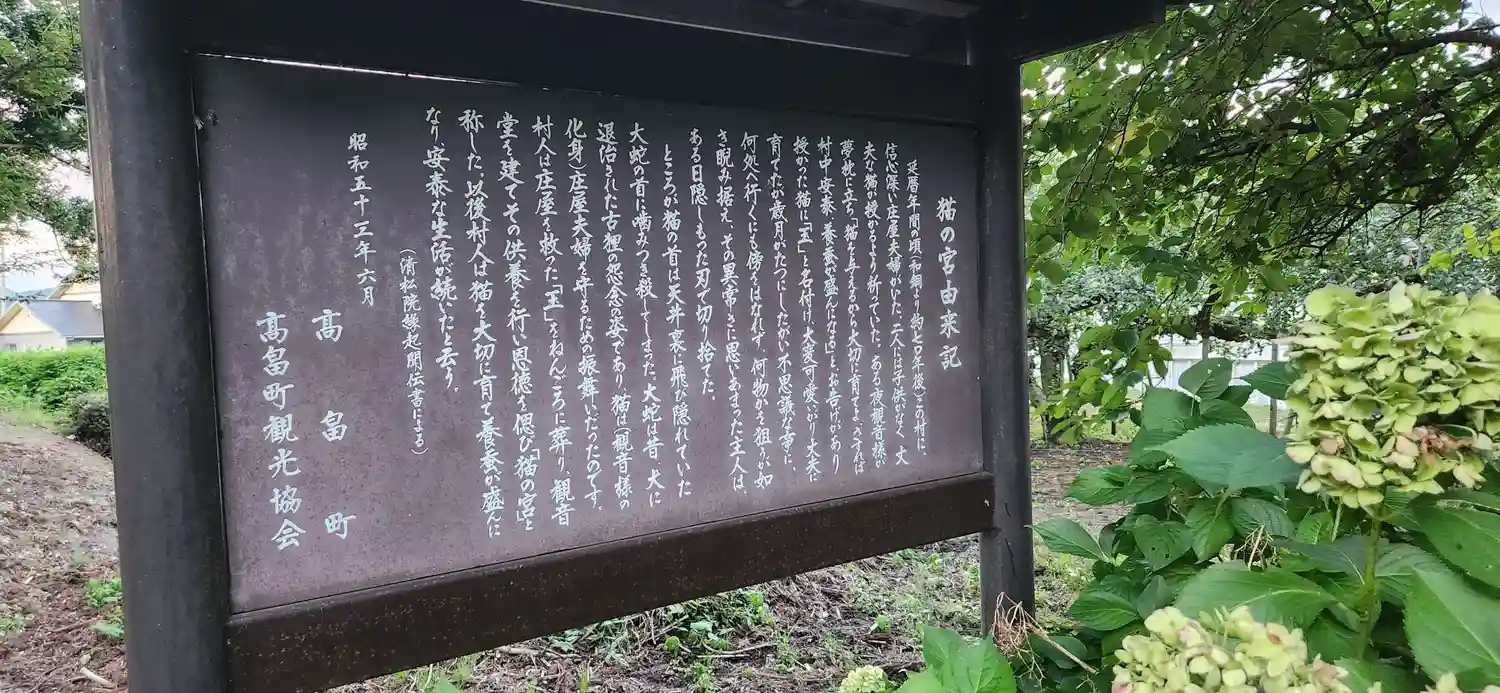 猫の宮由来記
延暦年間の頃(和銅より約七〇年後)この村に、
信心深い庄屋夫婦がいた。二人は子供がなく、丈
夫な猫が授かるより祈っていた。ある夜観音様が
夢枕に立ち「猫を与えるから大切に育てよ、さすれば
村中安泰、養蚕が盛んになる」と、お告げがあり
授かった猫に「玉」と名付け、大変可愛いがり大夫に
育てたが歳月がたつにしたがい不思議な事に、
何処へ行くにも傍をはなれず、何物かを狙うが如
き睨み据え、その異常さに思いあまった主人は、
ある日隠しもった刃で切り捨てた。
ところが猫の首は天井裏に飛び隠れていた
大蛇の首に噛みつき殺してしまった。大蛇は昔、犬に
退治された古狸の怨念の姿であり、猫は(観音様の
化身)庄屋夫婦を守るための振舞いだったのです。
村人は庄屋を救った「玉」をねんごろに葬り、観音
堂を建ててその供養を行い恩徳を偲び「猫の宮」と
称した。以後村人は猫を大切に育て養蚕が盛んに
なり安泰な生活が続いたと云う。
(清松院縁起聞伝書による)
昭和五十三年六月
高畠町
高畠町観光協会